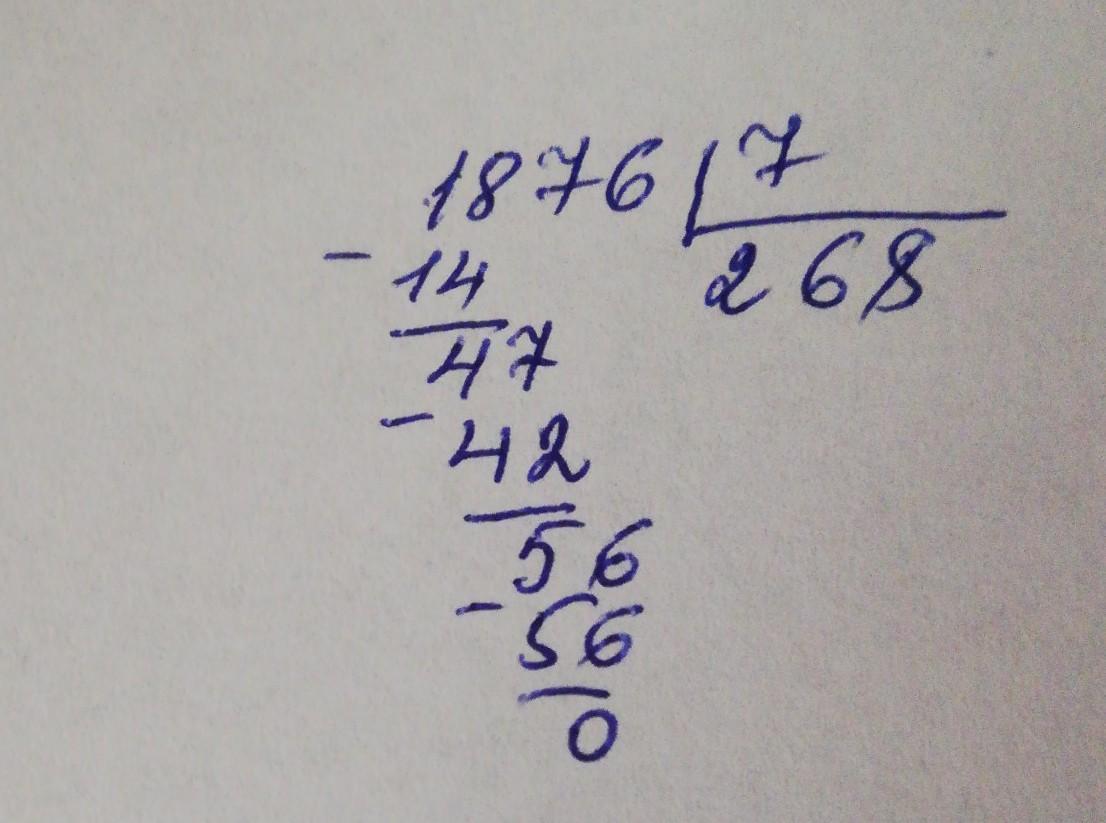 1876 7
- 14 268
47
- 42
56
- 56
0